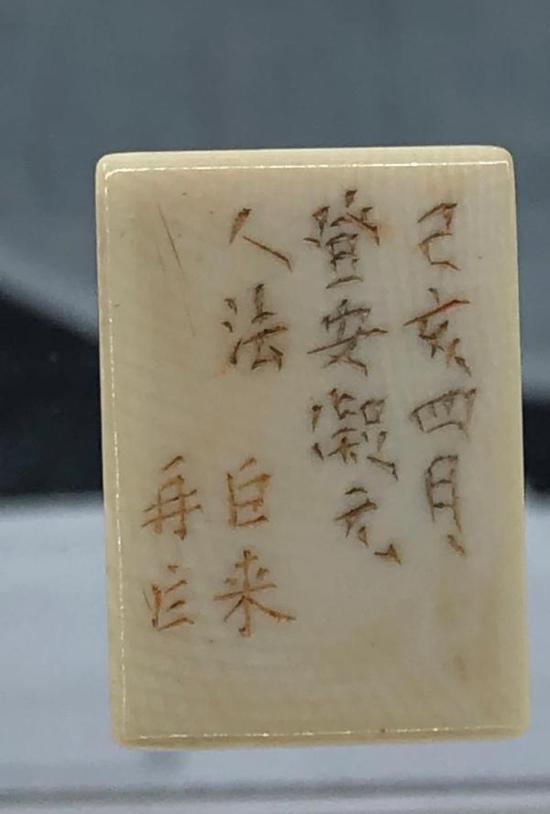 己亥四月
登安凝元
人法 白来
再它